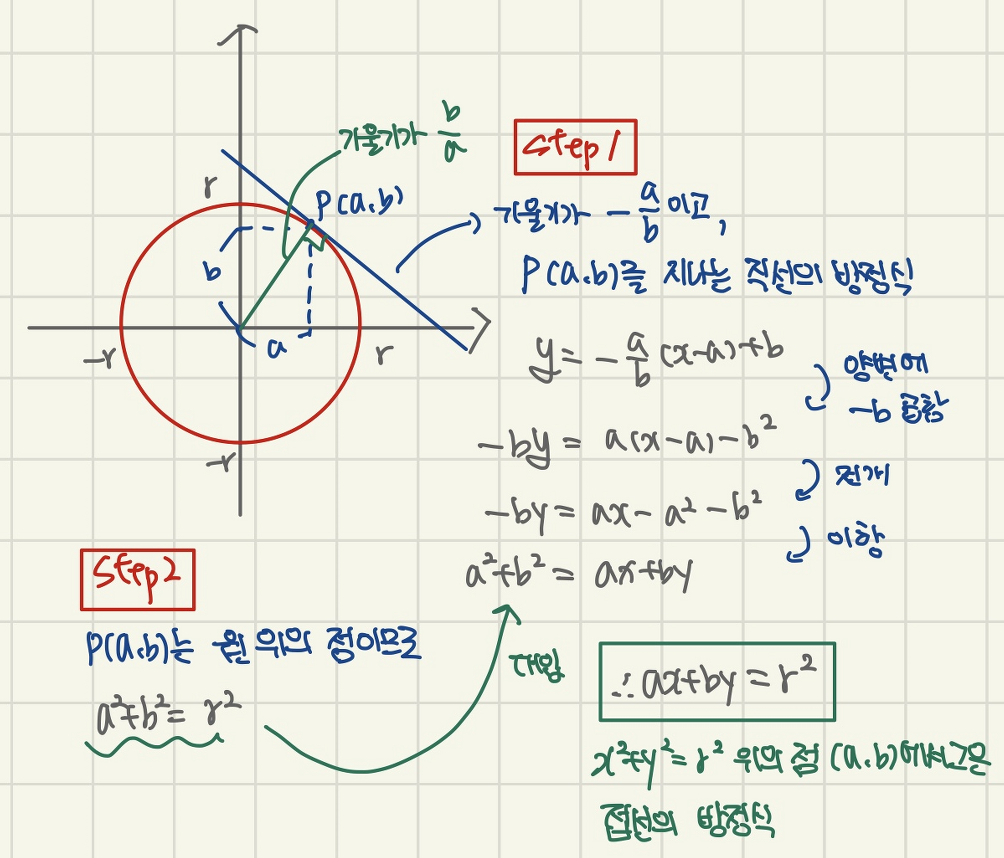 기울기가 b/a
r
P(a,b)
b
a
-r
r
-r
Step1
기울기가 -a/b 이고,
P(a,b)를 지나는 직선의 방정식
y = -a/b (x-a)+b
양변에
-b 곱함
-by = a(x-a)-b²
전개
-by = ax-a²-b²
이항
a²+b² = ax+by
Step2
P(a,b)는 원 위의 점이므로
a²+b² = r²
대입
∴ ax+by = r²
x²+y²=r² 위의 점 (a,b)에서 그은
접선의 방정식